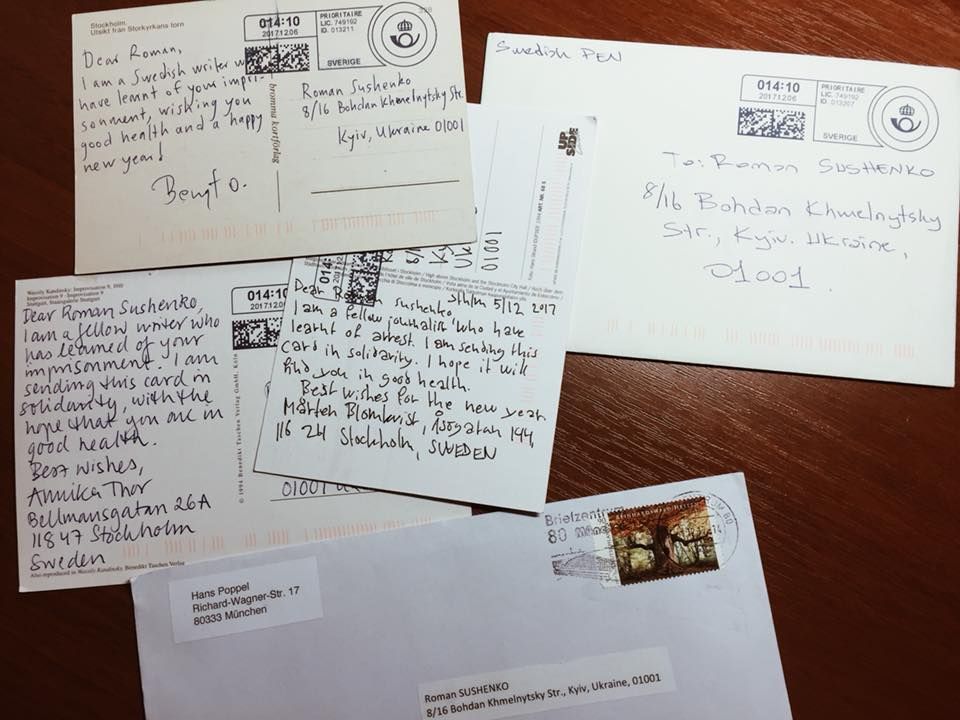 Stockholm.
Utsikt från Storkyrkans torn
Dear Roman,
I am a Swedish writer w
have learnt of your impri-
sonment, wishing you
good health and a happy
new year!
Bengt O.
bromma kortförlag
014:10
2017.12.06
PRIORITAIRE
LIC. 749192
ID. 013211
SVERIGE
Roman Sushenko
8/16 Bohdan Khmelnytsky Str.
Kyiv, Ukraine 01001
Swedish PEN
014:10
2017.12.06
PRIORITAIRE
LIC. 749192
ID. 013207
SVERIGE
To: Roman SUSHENKO
8/16 Bohdan Khmelnytsky
Str., Kyiv. Ukraine,
01001.
Wassily Kandinsky: Improvisation 9, 1910
Improvisation 9 · Improvisation 9
Stuttgart, Staatsgalerie Stuttgart
Dear Roman Sushenko,
I am a fellow writer who
has learned of your
imprisonment. I am
sending this card in
solidarity, with the
hope that you are in
good health.
Best wishes,
Annika Thor
Bellmansgatan 26A
118 47 Stockholm
Sweden
Also reproduced in Wassily Kandinsky, Benedikt Taschen Verlag
© 1994 Benedikt Taschen Verlag GmbH, Köln
014:1
2017.12
01001
UPSIDE
01001
Sthlm 5/12 2017
Dear Roman Sushenko
I am a fellow journalist who have
learnt of arrest. I am sending this
card in solidarity. I hope it will
find you in good health.
Best wishes for the new year.
Mårten Blomkvist, Åsögatan 144,
116 24 Stockholm, SWEDEN
Hans Poppel
Richard-Wagner-Str. 17
80333 München
Briefzentrum 80
80
Roman SUSHENKO
8/16 Bohdan Khmelnytsky Str., Kyiv, Ukraine, 01001